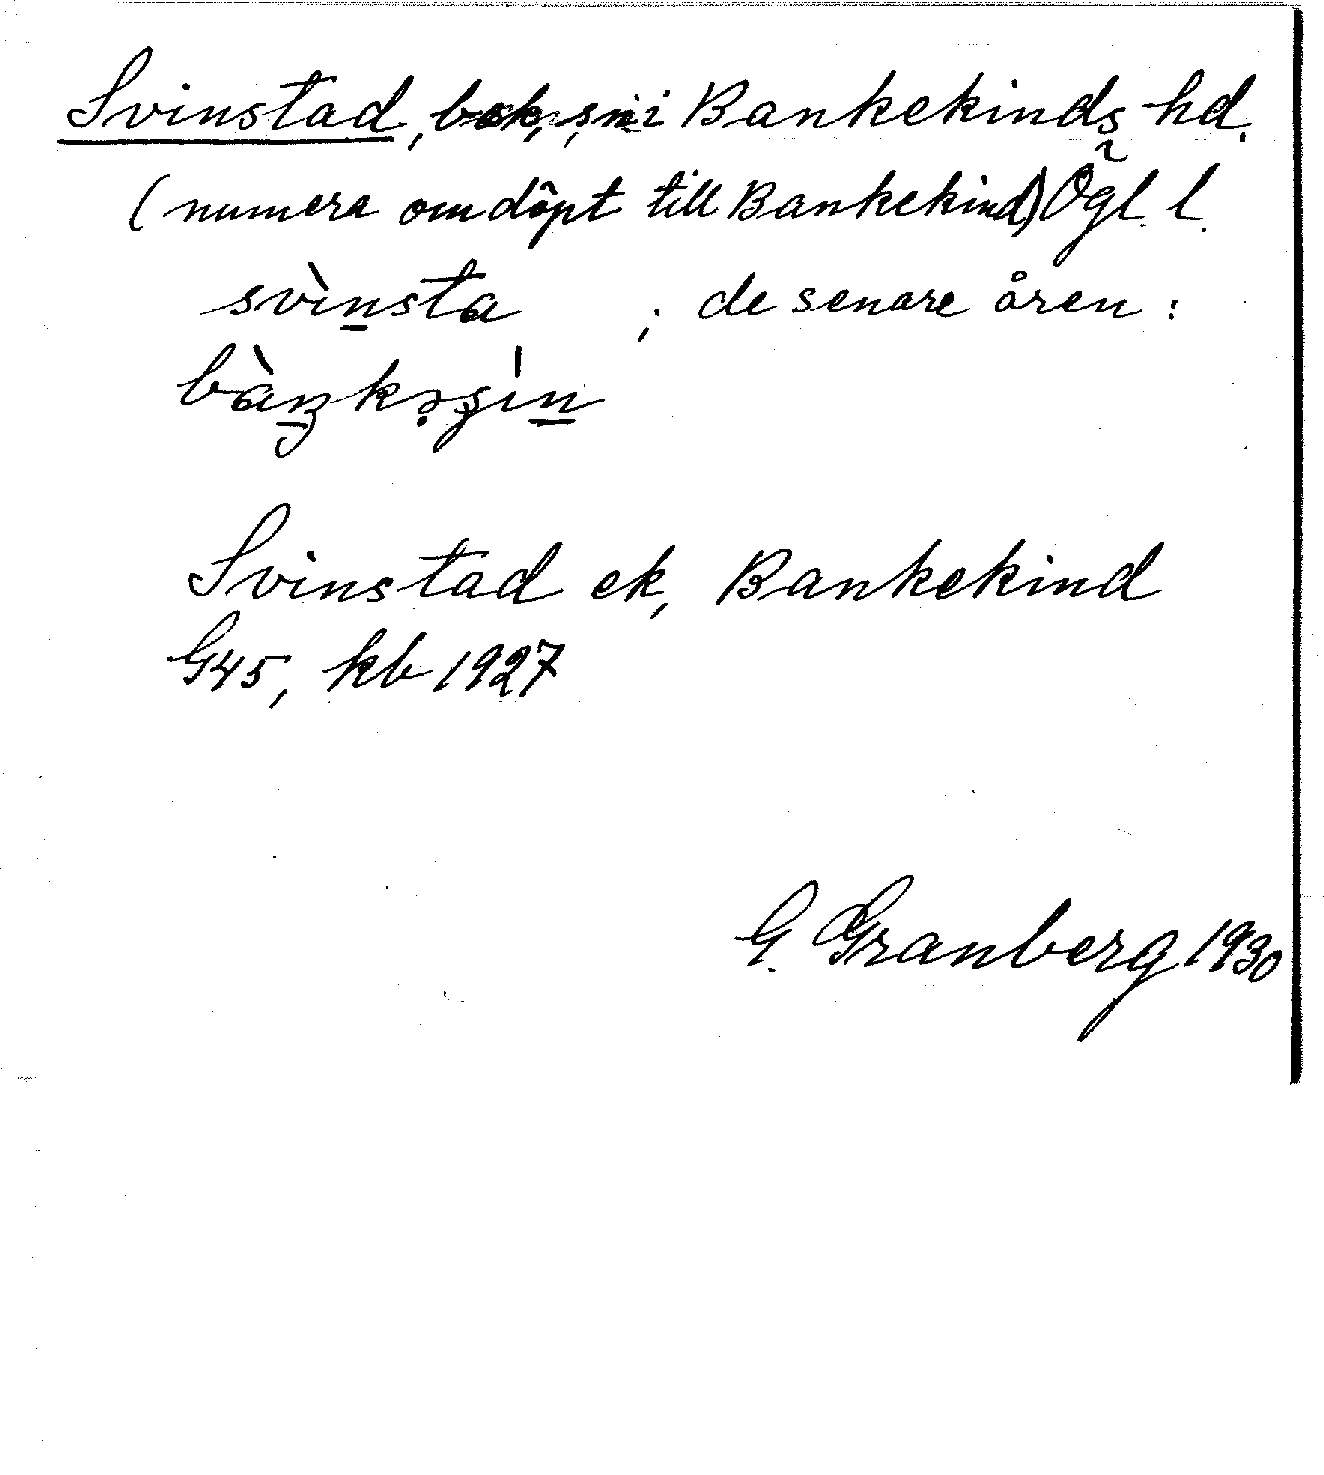 Svinstad, sn i Bankekinds hd.
(numera omdöpt till Bankekind) Ögl. l.
svìnsta ; de senare åren :
bàŋkəʂin
Svinstad ek, Bankekind
G45, kb 1927
G. Granberg 1930